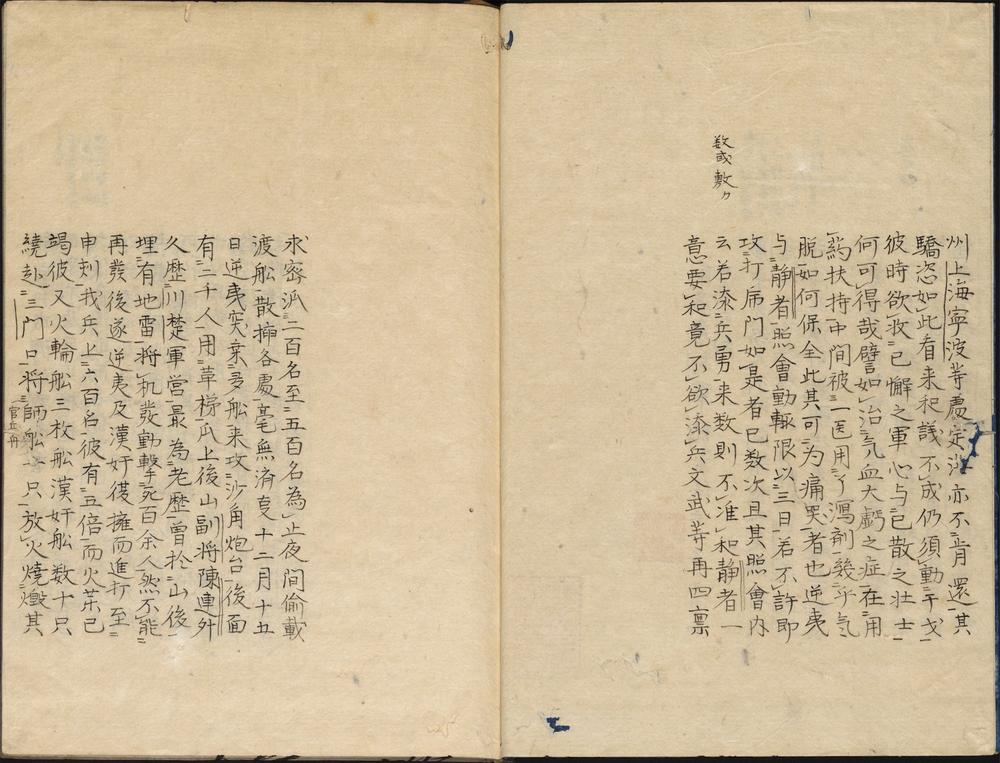 数或敷カ
州上海寧波等處定沙亦不肯還其
驕恣如此看来和議不成仍須動干戈
彼時欲收已懈之軍心与已散之壮士
何可得哉譬如治氣血大虧之症在用
药扶持中間被一医用了瀉剤幾乎气
脱如何保全此其可为痛哭者也逆夷
与静者照會動輒限以三日若不許即
攻打乕門如是者已数次且其照會内
云若添兵勇来数則不准和静者一
意要和竟不欲添兵文武等再四禀
求密派二百名至五百名為止夜間偷載
渡船散揷各處毫無済叓十二月十五
日逆夷突乗多船来攻沙角炮台後面
有二千人用草梯爪上後山副将陳連升
久歴川楚軍営最為老歴曾於山後
埋有地雷将机發動撃死百余人然不能
再發後遂逆夷及漢奸後擁而進打至
申刻我兵上六百名彼有五倍而火茱已
竭彼又火輪船三枚船漢奸船数十只
繞赴三門口将師船一只放火燒燬其
官兵舟